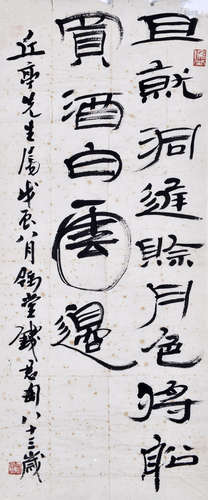 且就洞庭賒月色將船
買酒白雲邊
丘亭先生屬戊辰八月豫堂錢君匋八十三歲